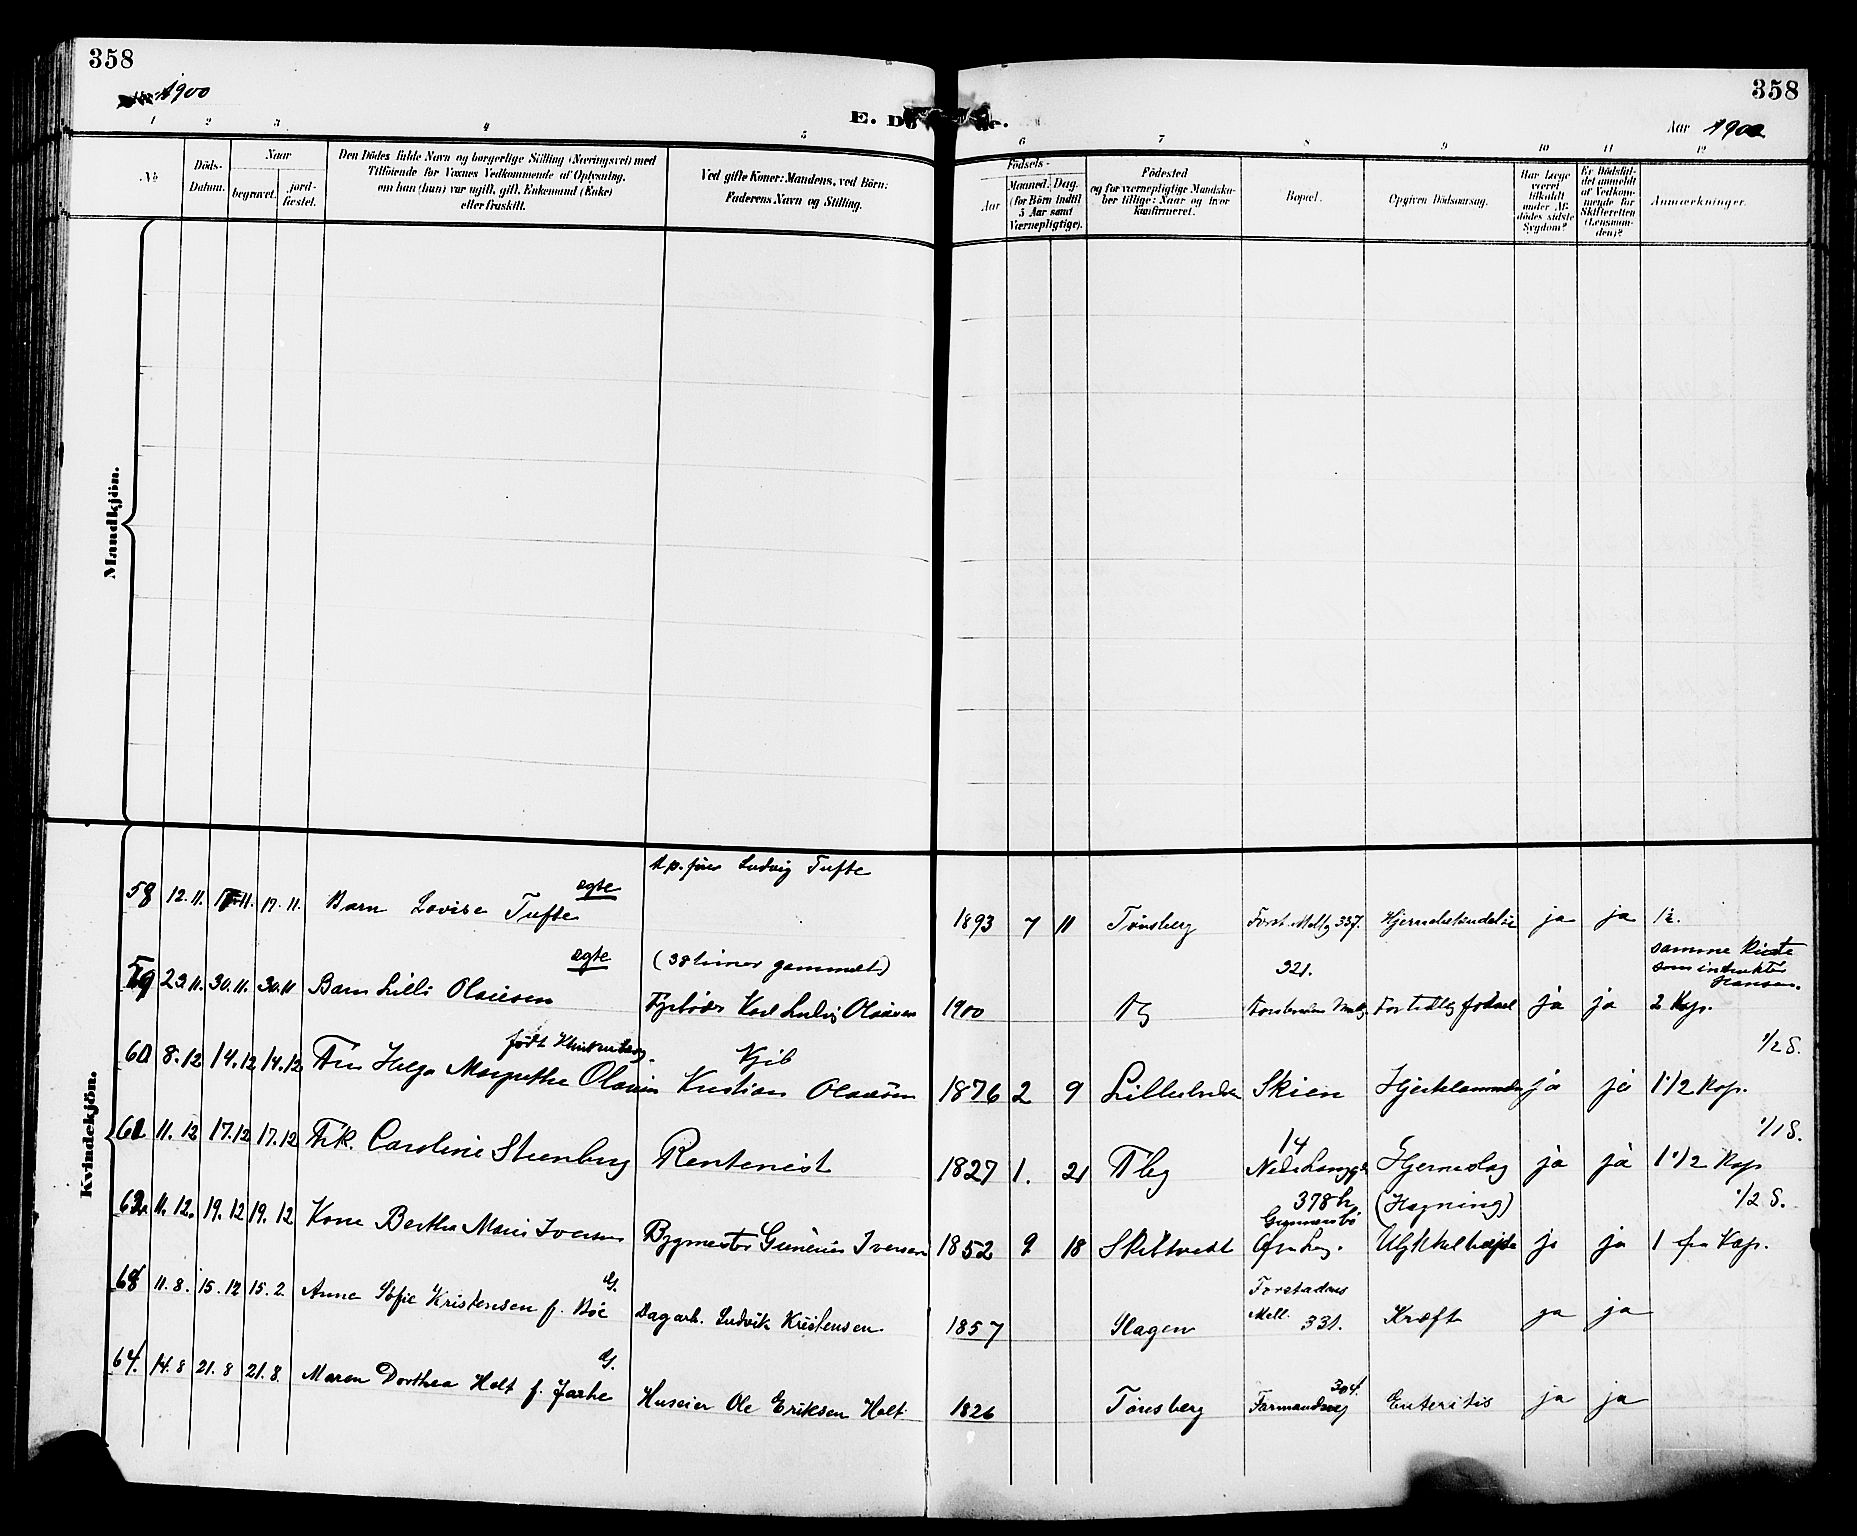 358
358
1900
E. Dö
Aar 1900
1 2 3 4 5 6 7 8 9 10 11 12
No
Döds-Datum.
Naar
begravet.
jord-fæstet.
Den Dödes fulde Navn og borgerlige Stilling (Næringsvei) med
Tilföiende for Voxnes Vedkommende af Oplysning,
om han (hun) var ugift, gift, Enkemand (Enke)
eller fraskilt.
Ved gifte Koner: Mandens, ved Börn:
Faderens Navn og Stilling.
Födsels-
Aar
Maaned. Dag.
(for Börn indtil
5 Aar samt
Værnepligtige).
Födested
og for værnepligtige Mandska-
ber tillige: Naar og hvor
konfirmeret.
Bopæl.
Opgiven Dödsaarsag.
Har Læge
været
tilkaldt
under Af-
dödes sidste
Sygdom?
Er Dödsfal-
det anmeldt
af Vedkom-
mende for
Skifteretten
(Lensman-
den)?
Anmærkninger.
Mandkjön.
Kvindekjön.
58 12.11. 17.11. 17.11. Barn Lovise Tufte ægte Ludvig Tufte 1893 7 11 Tønsberg 337. ja ja 1½.
59 23.11. 30.11. 30.11 Barn Lilli Olausen ægte (38 timer gammelt) Karl Ludvig Olausen 1900 321. For tidlig fødsel ja ja samme Kiste som Hansen. 2 Kap.
60 8.12 14.12 14.12 Fru Helga Margrethe Olausen født Kristian Olausen 1876 2 9 Skien ja ja 1/2 S. 1 1/2 Kap.
61 11.12 17.12 17.12 Frk. Caroline Steenberg Rentenist 1827 1. 21 Tbg 14 Hjerneslag ja ja 1/1 S. 1 1/2 Kap
62 11.12. 19.12 19.12 Kone Bertha Marie Iversen Bygmester Gunerius Iversen 1852 9 18 Skibtvedt 378 b (Hægning) ja ja 1/2 S. 1 Kap.
63 11.8. 15.12 15.2 Anna Sofie Kristensen f. Böe G. Dagarb. Ludvik Kristensen. 1857 Slagen Forstadens Mell. 331. Kræft ja ja
64. 14.8 21.8 21.8. Maren Dorthea Holt f. Jarhe G. Huseier Ole Eriksen Holt 1826 Tönsberg 304. Farmandsvej Enteritis ja ja